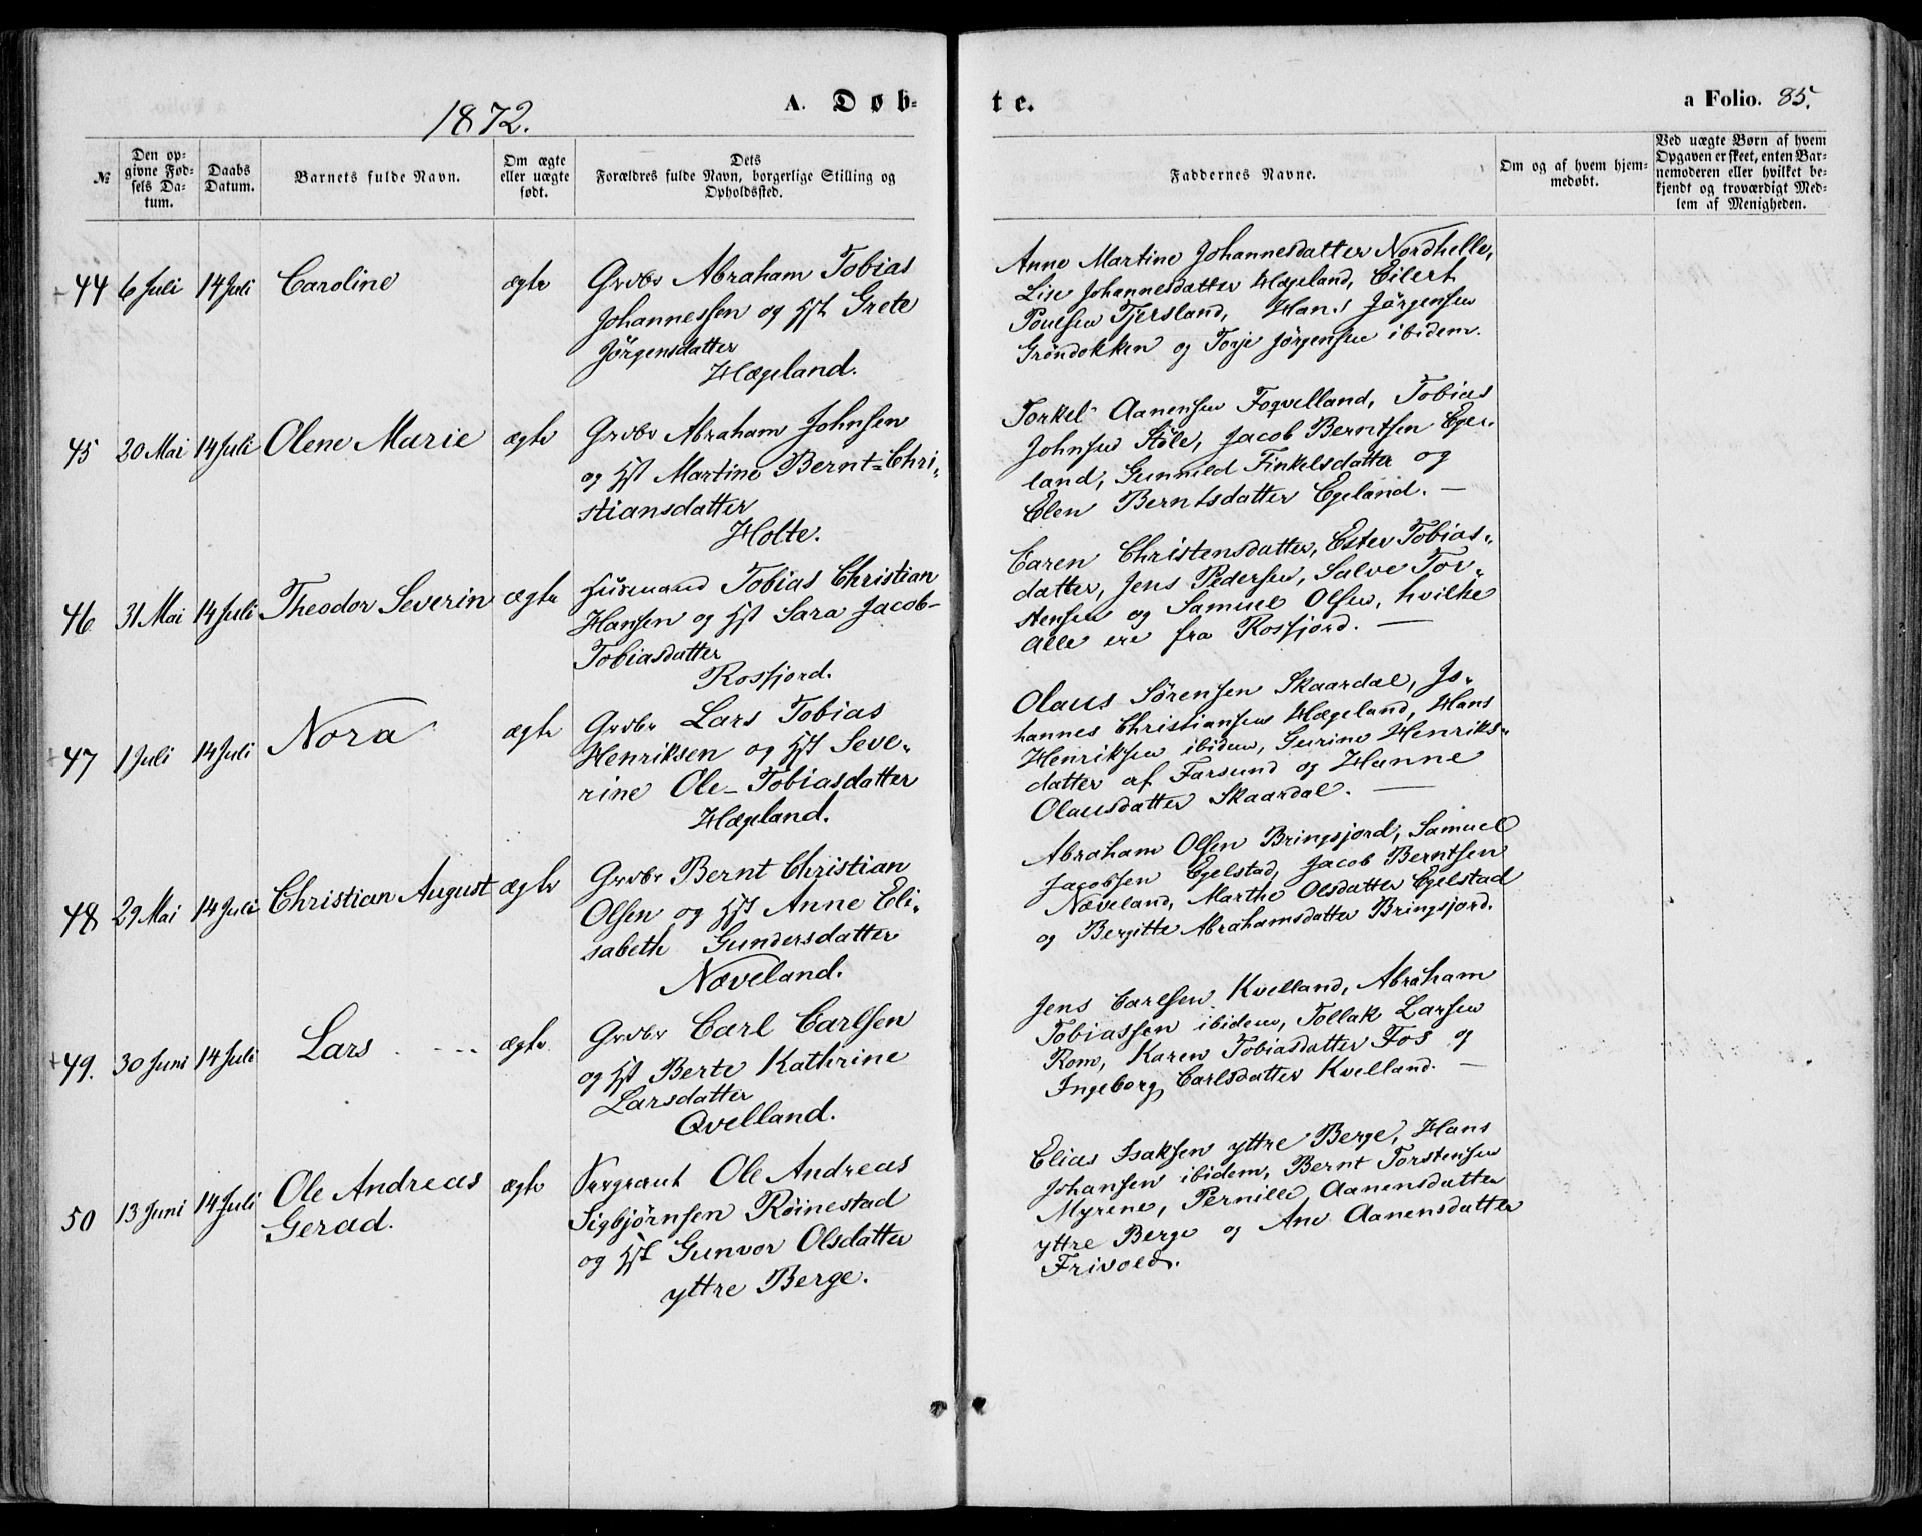 1872.
A. Døb-
te.
a Folio. 85.
№
Den op-
givne Fød-
sels Da-
tum.
Daabs
Datum.
Barnets fulde Navn.
Om ægte
eller uægte
født.
Dets
Forældres fulde Navn, borgerlige Stilling og
Opholdssted.
Faddernes Navne.
Om og af hvem hjem-
medøbt.
Ved uægte Børn af hvem
Opgaven er skeet, enten Bar-
nemoderen eller hvilket be-
kjendt og troværdigt Med-
lem af Menigheden.
44 6 Juli 14 Juli Caroline ægte
Grdbr Abraham Tobias
Johannessen og Hst Grete
Jörgensdatter
Hægeland.
Anne Martine Johannesdatter Nordhelle,
Lise Johannesdatter Hægeland, Eilert
Poulsen Tjersland, Hans Jörgensen
Gröndokken og Torje Jörgensen ibidem.
45 20 Mai 14 Juli Olene Marie ægte
Grdbr Abraham Johnsen
og Hst Martine Bernt=Chri-
stiansdatter
Holte.
Torkel Aanensen Foqvelland, Tobias
Johnsen Støle, Jacob Berntsen Ege-
land, Gunnild Finkelsdatter og
Elen Berntsdatter Egeland. —
46 31 Mai 14 Juli Theodor Severin ægte
Husmand Tobias Christian
Hansen og Hst Sara Jacob-
Tobiasdatter
Rosfjord.
Caren Christensdatter, Ester Tobias-
datter, Jens Pedersen, Salve Tor-
stensen og Samuel Olsen, hvilke
alle ere fra Rosfjord. —
47 1 Juli 14 Juli Nora ægte
Grdbr Lars Tobias
Henriksen og Hst Seve-
rine Ole-Tobiasdatter
Hægeland.
Olaus Sørensen Skaardal, Jo-
hannes Christiansen Hægeland, Hans
Henriksen ibidem, Gurine Henriks-
datter af Farsund og Hanne
Olausdatter Skaardal. —
48 29 Mai 14 Juli Christian August ægte
Grdbr Bernt Christian
Olsen og Hst Anne Eli-
sabeth Gundersdatter
Næveland.
Abraham Olsen Bringsjord, Samuel
Jacobsen Egelstad, Jacob Berntsen
Næveland, Marthe Olsdatter Egelstad
og Bergitte Abrahamsdatter Bringsjord.
49. 30 Juni 14 Juli Lars ægte
Grdbr Carl Carlsen
og Hst Berte Kathrine
Larsdatter
Qvelland.
Jens Carlsen Kvelland, Abraham
Tobiassen ibidem, Tollak Larsen
Rom, Karen Tobiasdatter Fos og
Ingeborg Carlsdatter Kvelland. —
50 13 Juni 14 Juli Ole Andreas ægte
Gerad.
Sergeant Ole Andreas
Sigbjørnsen Røinestad
og Hst Gunvor Olsdatter
yttre Berge.
Elias Isaksen yttre Berge, Hans
Johansen ibidem, Bernt Torstensen
Myrene, Pernille Aanensdatter
yttre Berge og Ane Aanensdatter
Frivold.